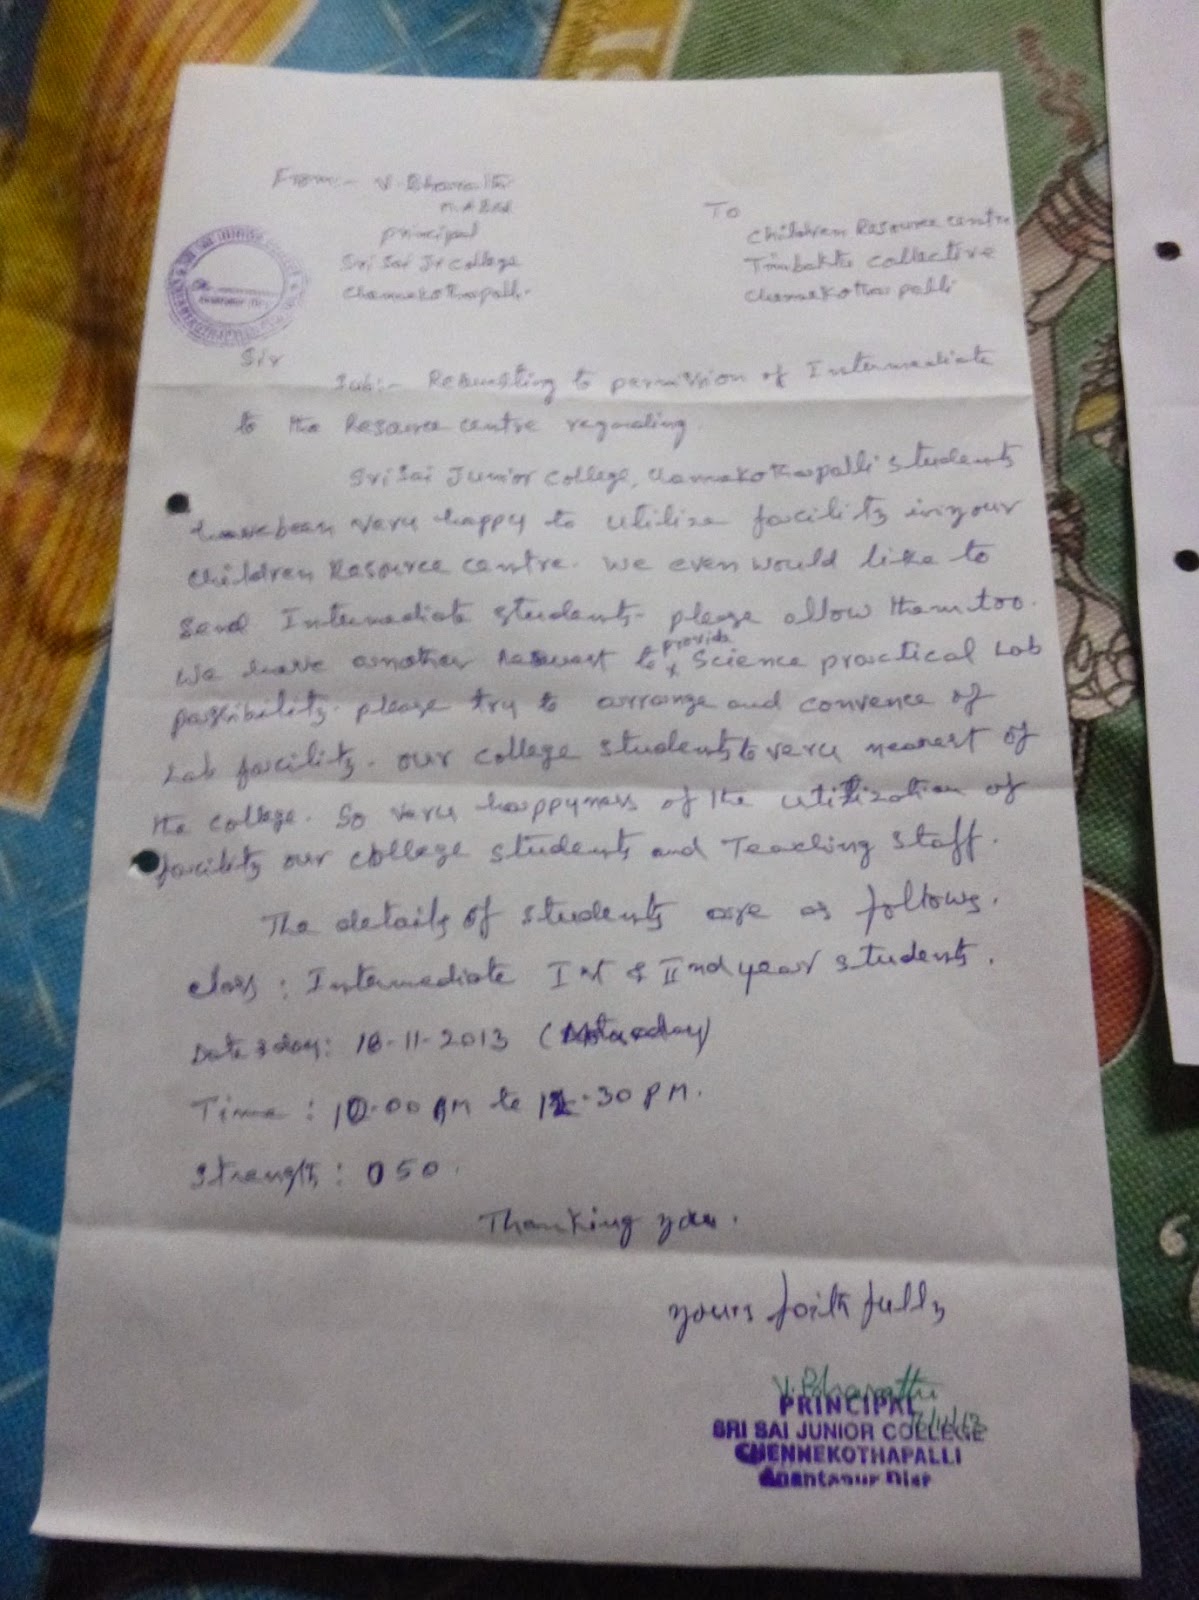 From:- V. Bharathi
M.A B.Ed
Principal
Sri Sai Jr College
Chennekothapalli.
To
Children Resource centre
Timbaktu collective
Chennekothapalli
Sir
Sub:- Requesting to permission of Intermediate
to the Resource centre regarding.
Sri Sai Junior College, Chennekothapalli students
have been very happy to utilize facility in your
children Resource centre. We even would like to
send Intermediate students. please allow them too.
We have another Request to provide Science practical Lab
possibility. please try to arrange and convence of
Lab facility. our college students to very nearest of
the college. So very happyness of the utilization of
facility our college students and Teaching staff.
The details of students are as follows.
Class : Intermediate Ist & IInd year students.
Date & day: 18-11-2013
Time : 10.00 AM to 12.30 PM.
Strength : 050.
Thanking you.
yours faithfully
V. Bharathi
PRINCIPAL
SRI SAI JUNIOR COLLEGE
CHENNEKOTHAPALLI
Anantapur Dist